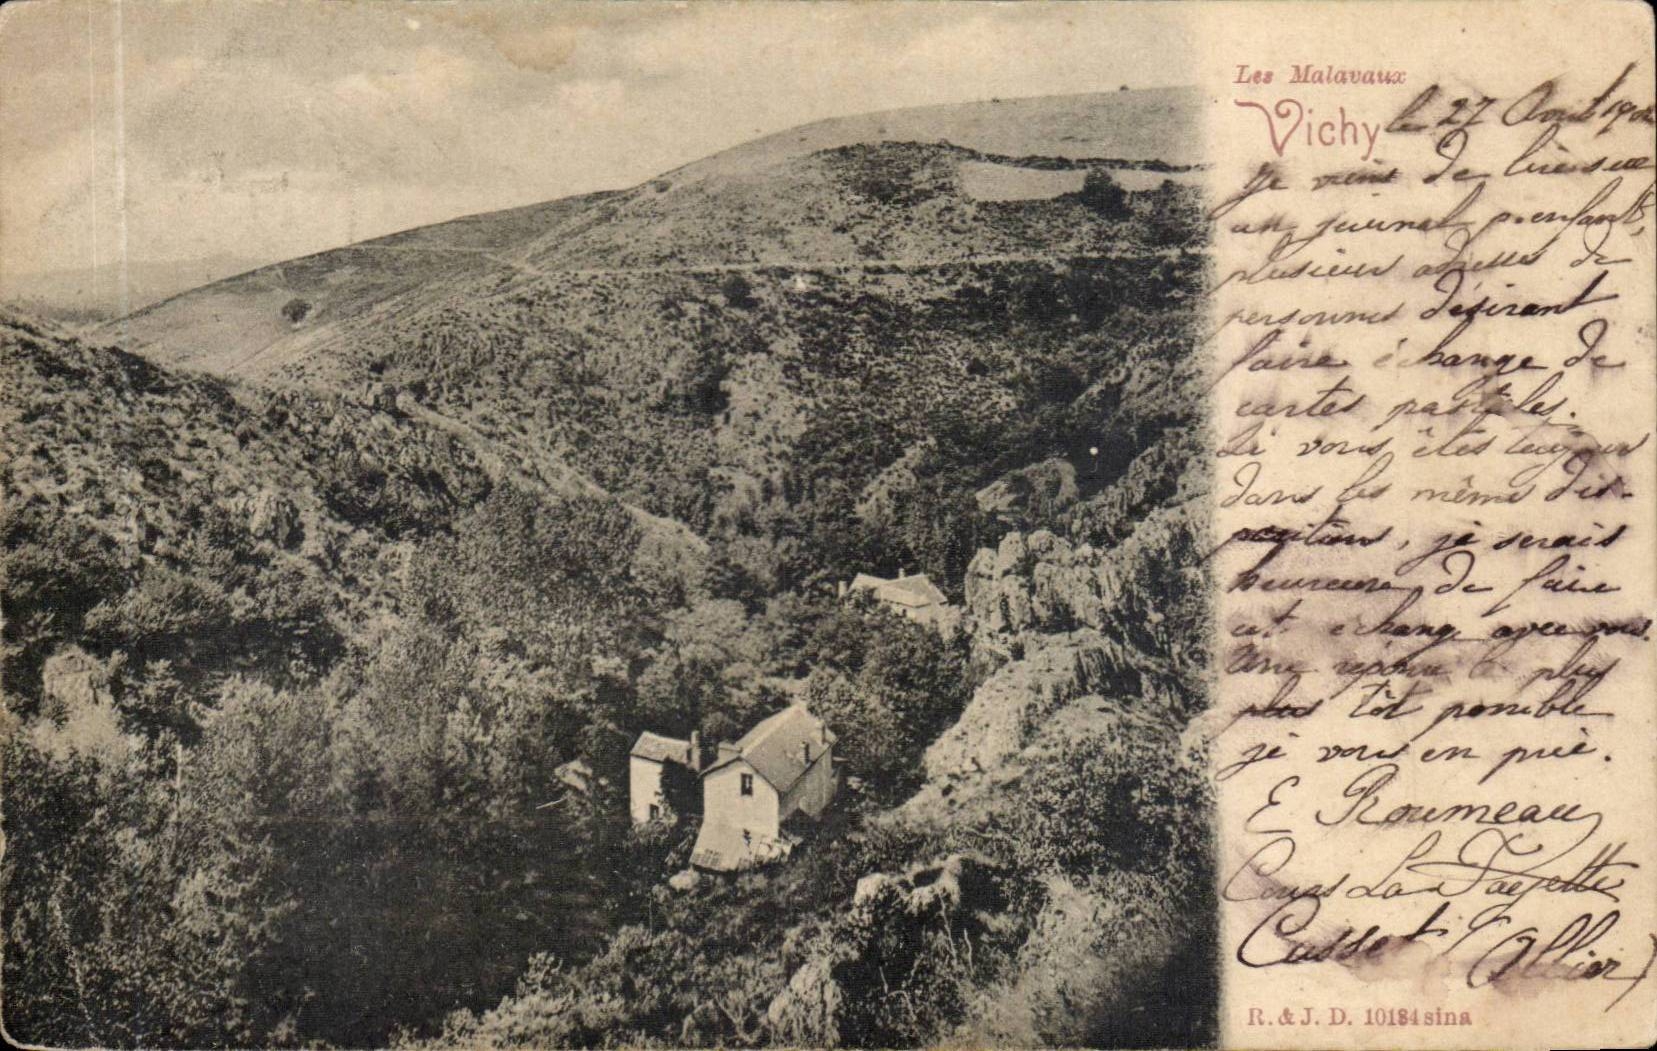 Les Malavaux
Vichy
le 27 Aout 190
Je viens de lire sur
un journal p. enfants,
plusieurs adresses de
personnes désirant
faire échange de
cartes postales.
Si vous êtes toujours
dans les mêmes dis-
positions, je serais
heureuse de faire
cet échange avec vous.
Une réponse le plus
plus tôt possible
je vous en prie.
E Roumeau
Cours La Fayette
Cusset (Allier)
R. & J. D. 10184 sina